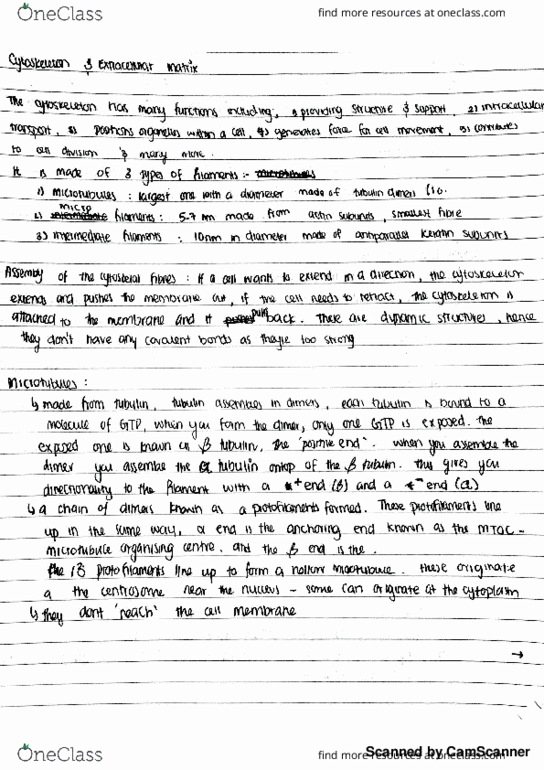 OneClass
find more resources at oneclass.com
Cytoskeleton & Extracellular matrix
The cytoskeleton has many functions including; 1) providing structure & support, 2) intracellular
transport, 3) positions organelles within a cell, 4) generates force for cell movement, 5) contributes
to cell division & many more.
It is made of 3 types of filaments :-
1) microtubules : largest one with a diameter made of tubulin dimers
2) micro filaments : 5-7 nm made from actin subunits, smallest fibre
3) intermediate filaments : 10nm in diameter made of antiparallel keratin subunits
Assembly of the cytoskeletal fibres : if a cell wants to extend in a direction, the cytoskeleton
extends and pushes the membrane out, if the cell needs to retract, the cytoskeleton is
attached to the membrane and it pulls back. These are dynamic structures, hence
they don't have any covalent bonds as they're too strong
Microtubules :
↳ made from tubulin, tubulin assembles in dimers, each tubulin is bound to a
molecule of GTP, when you form the dimer, only one GTP is exposed. the
exposed one is known as β tubulin, the 'positive end'. when you assemble the
dimer you assemble the α tubulin ontop of the β tubulin. this gives you
directionality to the filament with a + end (β) and a - end (α)
↳ a chain of dimers known as a protofilaments formed. These protofilaments line
up in the same way, α end is the anchoring end known as the MTOC -
microtubule organising centre. and the β end is the.
the 13 protofilaments line up to form a hollow microtubule. these originate
a the centrosome near the nucleus - some can originate at the cytoplasm
↳ they dont 'reach' the cell membrane
→
OneClass
find more resources at oneclass.com
Scanned by CamScanner